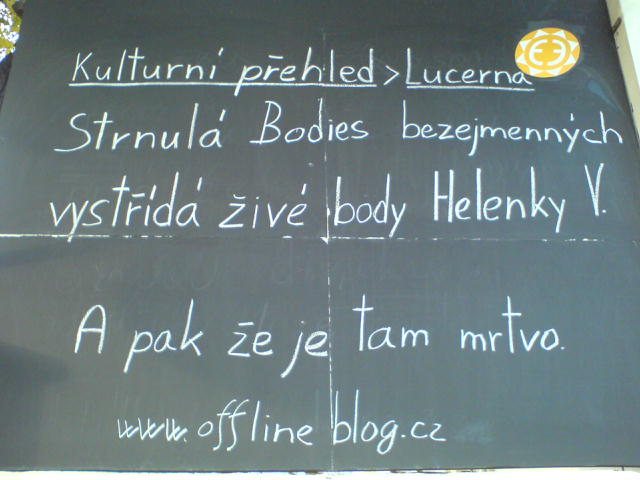 Kulturní přehled > Lucerna
Strnulá Bodies bezejmenných
vystřídá živé body Helenky V.
A pak že je tam mrtvo.
www.offlineblog.cz